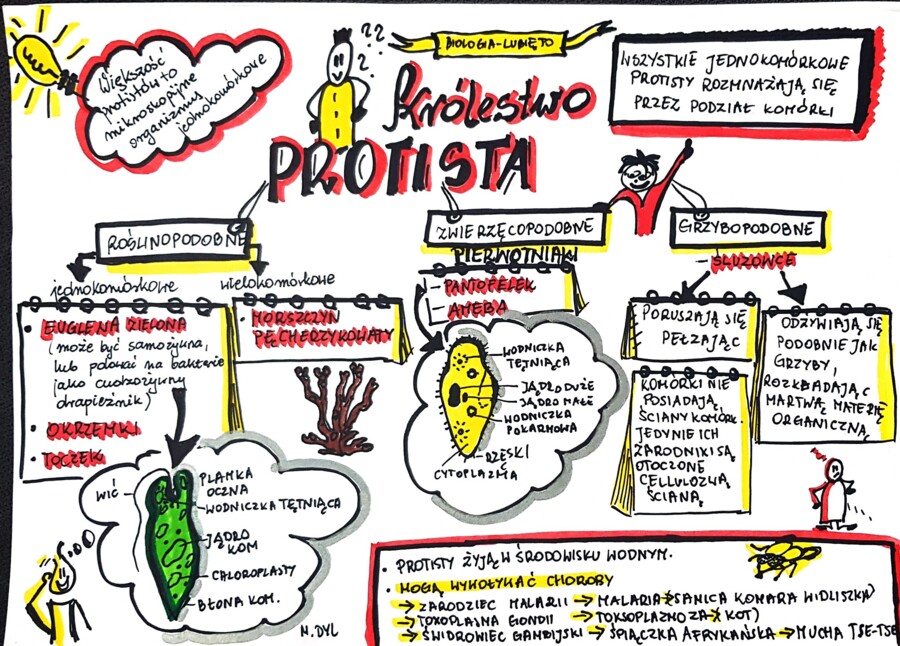 BIOLOGIA-LUBIĘTO
Królestwo
PROTISTA
Większość
protistów to
mikroskopijne
organizmy
jednokomórkowe
WSZYSTKIE JEDNOKOMÓRKOWE
PROTISTY ROZMNAŻAJĄ SIĘ
PRZEZ PODZIAŁ KOMÓRKI
ROŚLINOPODOBNE
jednokomórkowe
wielokomórkowe
• EUGLENA ZIELONA
(może być samożywna,
lub polować na bakterie
jako cudzożywny
drapieżnik)
• OKRZEMKI
• TOCZEK
• MORSZCZYN
PĘCHERZYKOWATY
WIĆ
PLAMKA
OCZNA
WODNICZKA TĘTNIĄCA
JĄDRO
KOM
CHLOROPLASTY
BŁONA KOM.
N.DYL
ZWIERZĘCOPODOBNE
PIERWOTNIAKI
- PANTOFELEK
- AMEBA
WODNICZKA
TĘTNIĄCA
JĄDRO DUŻE
JĄDRO MAŁE
WODNICZKA
POKARMOWA
RZĘSKI
CYTOPLAZMA
GRZYBOPODOBNE
- ŚLUZOWCE
PORUSZAJĄ SIĘ
PEŁZAJĄC
KOMÓRKI NIE
POSIADAJĄ
ŚCIANY KOMÓRK.
JEDYNIE ICH
ZARODNIKI SĄ
OTOCZONE
CELLULOZWĄ
ŚCIANĄ.
ODŻYWIAJĄ SIĘ
PODOBNIE JAK
GRZYBY,
ROZKŁADAJĄC
MARTWĄ MATERIĘ
ORGANICZNĄ
• PROTISTY ŻYJĄ W ŚRODOWISKU WODNYM.
• MOGĄ WYWOŁYWAĆ CHOROBY
→ ZARODZIEC MALARII → MALARIA → (SAMICA KOMARA WIDLISZKA)
→ TOXOPLASMA GONDII → TOKSOPLAZMOZA → KOT)
→ ŚWIDROWIEC GANDIJSKI → ŚPIĄCZKA AFRYKAŃSKA → MUCHA TSE-TSE